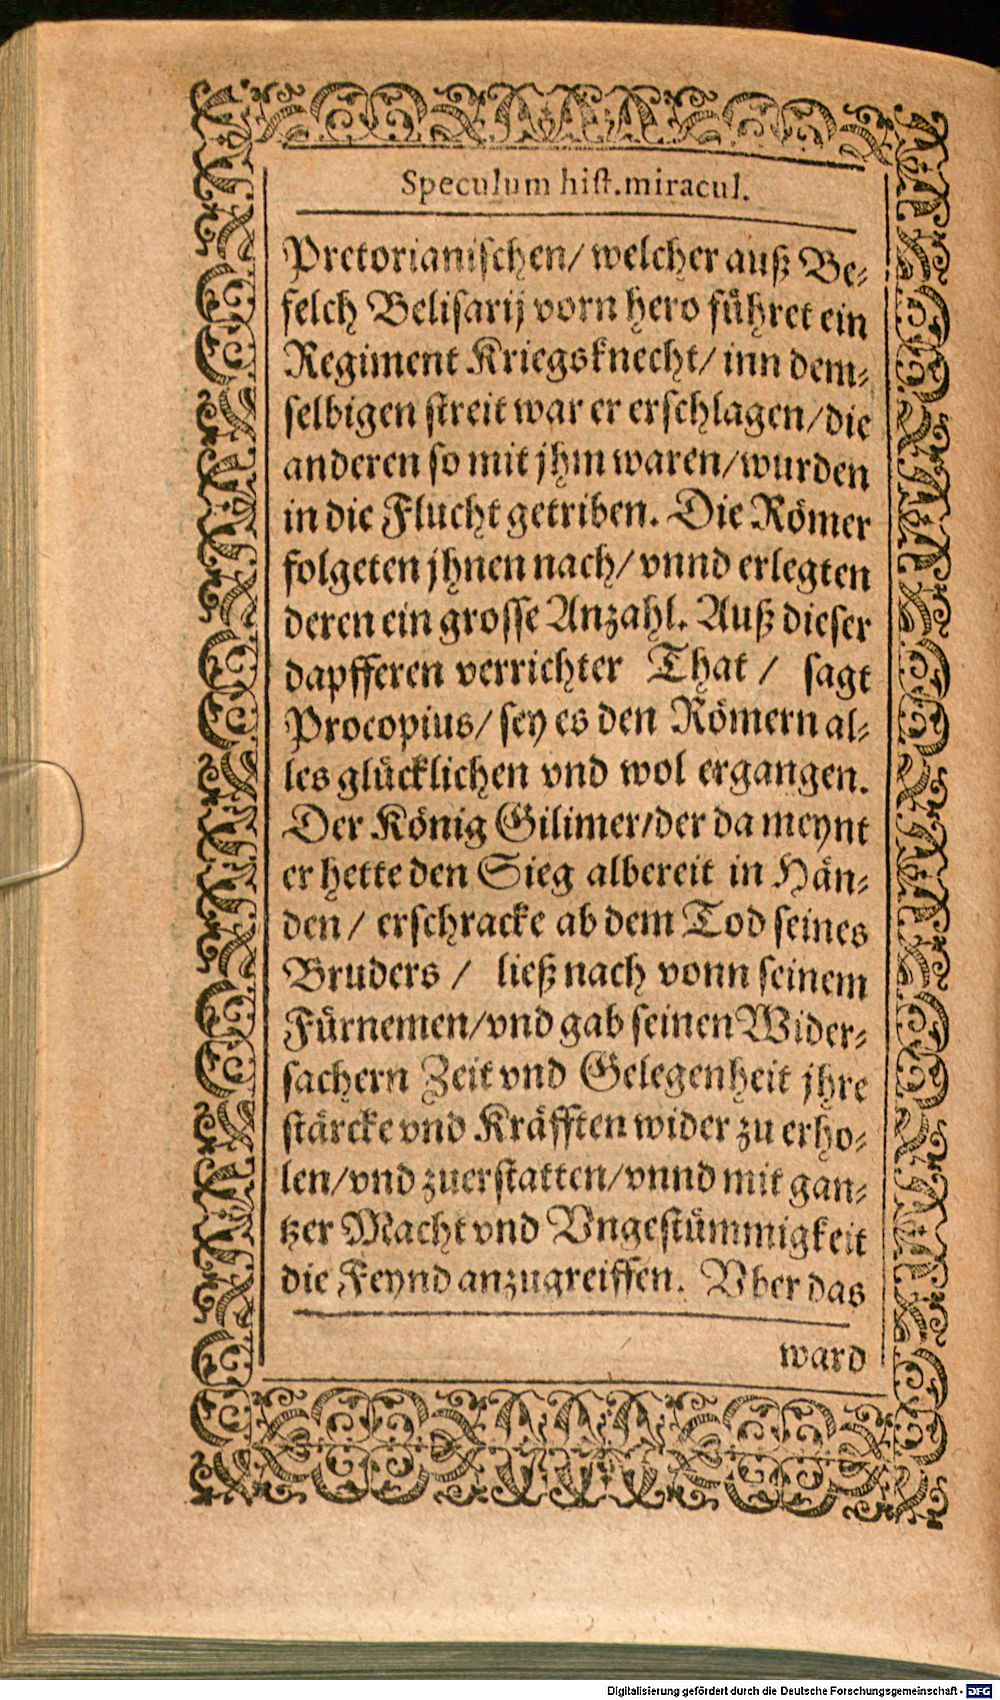 Speculum hist.miracul.
Pretorianischen/ welcher auß Be-
felch Belisarij vorn hero führet ein
Regiment Kriegsknecht/ inn dem-
selbigen streit war er erschlagen/die
anderen so mit jhm waren/wurden
in die Flucht getriben. Die Römer
folgeten jhnen nach/ vnnd erlegten
deren ein grosse Anzahl. Auß dieser
dapfferen verrichter That / sagt
Procopius/ sey es den Römern al-
les glücklichen vnd wol ergangen.
Der König Gilimer/der da meynt
er hette den Sieg albereit in Hän-
den/ erschracke ab dem Tod seines
Bruders / ließ nach vonn seinem
Fürnemen/vnd gab seinen Wider-
sachern Zeit vnd Gelegenheit jhre
stärcke vnd Kräfften wider zu erho-
len/vnd zuerstatten/vnnd mit gan-
tzer Macht vnd Vngestümmigkeit
die Feynd anzugreiffen. Vber das
ward
Digitalisierung gefördert durch die Deutsche Forschungsgemeinschaft - DFG